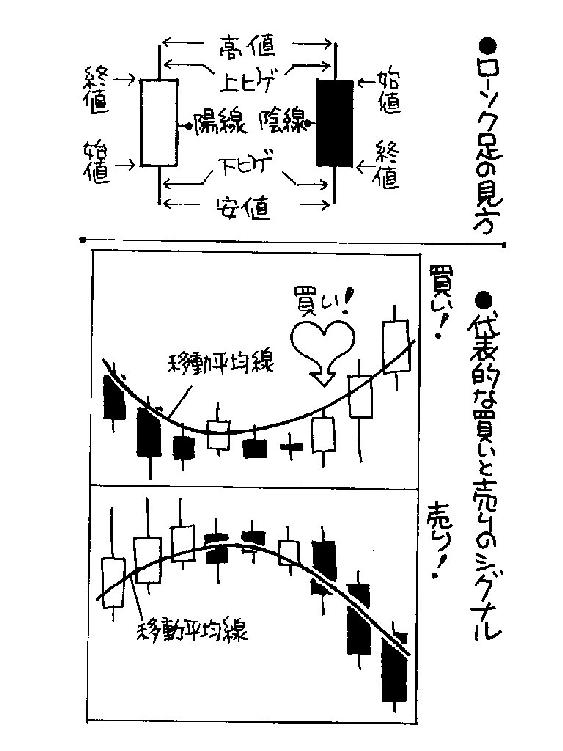 ●ローソク足の見方
高値
上ヒゲ
終値
始値
陽線
陰線
始値
終値
下ヒゲ
安値
●代表的な買いと売りのシグナル
買い!
買い!
移動平均線
売り!
移動平均線